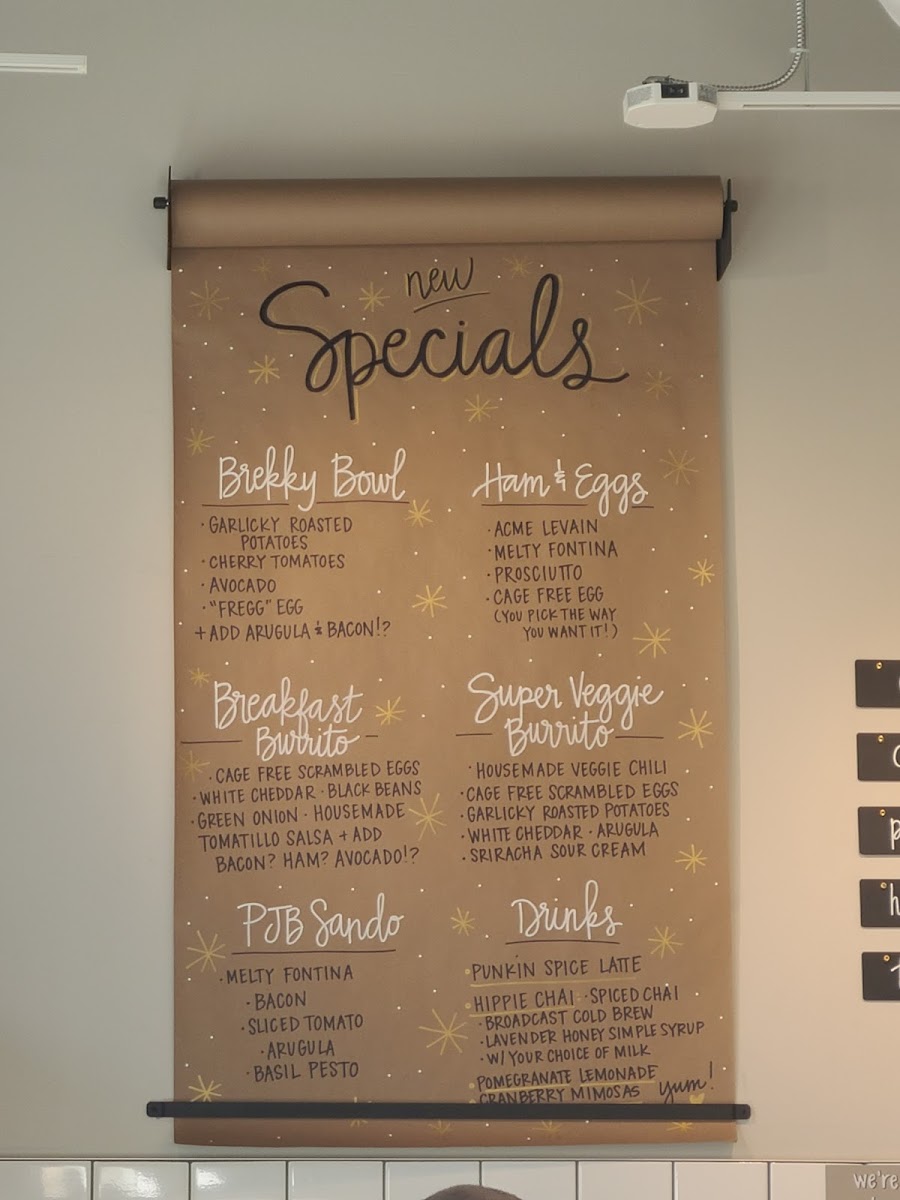 new
Specials
Brekky Bowl
· GARLICKY ROASTED
POTATOES
· CHERRY TOMATOES
· AVOCADO
· "FREGG" EGG
+ ADD ARUGULA & BACON!?
Ham & Eggs
· ACME LEVAIN
· MELTY FONTINA
· PROSCIUTTO
· CAGE FREE EGG
(YOU PICK THE WAY
YOU WANT IT!)
Breakfast
Burrito
· CAGE FREE SCRAMBLED EGGS
· WHITE CHEDDAR · BLACK BEANS
· GREEN ONION · HOUSEMADE
TOMATILLO SALSA + ADD
BACON? HAM? AVOCADO!?
Super Veggie
Burrito
· HOUSEMADE VEGGIE CHILI
· CAGE FREE SCRAMBLED EGGS
· GARLICKY ROASTED POTATOES
· WHITE CHEDDAR · ARUGULA
· SRIRACHA SOUR CREAM
PJB Sando
· MELTY FONTINA
· BACON
· SLICED TOMATO
· ARUGULA
· BASIL PESTO
Drinks
· PUNKIN SPICE LATTE
· HIPPIE CHAI : · SPICED CHAI
· BROADCAST COLD BREW
· LAVENDER HONEY SIMPLE SYRUP
· W/ YOUR CHOICE OF MILK
· POMEGRANATE LEMONADE
· CRANBERRY MIMOSAS yum!
we're